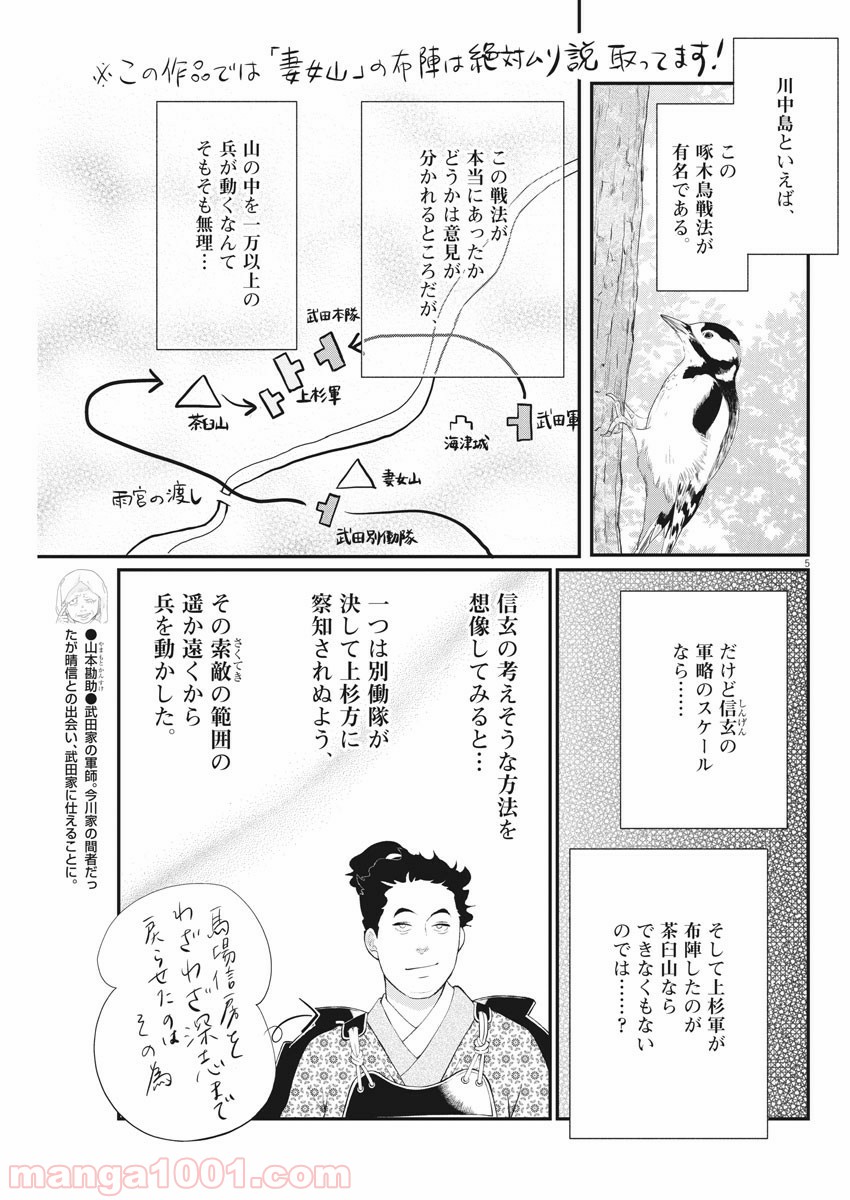 ※この作品では「妻女山」の布陣は絶対ムリ説取ってます!
川中島といえば、
この
啄木鳥戦法が
有名である。
この戦法が
本当にあったか
どうかは意見が
分かれるところだが、
山の中を一万以上の
兵が動くなんて
そもそも無理…
武田本隊
上杉軍
茶臼山
武田軍
海津城
妻女山
雨宮の渡し
武田別働隊
5
だけど信玄の
しんげん
軍略のスケール
なら……
そして上杉軍が
布陣したのが
茶臼山なら
できなくもない
のでは……?
信玄の考えそうな方法を
想像してみると…
一つは別働隊が
決して上杉方に
察知されぬよう、
その索敵の範囲の
さくてき
遥か遠くから
兵を動かした。
馬場信房を
わざわざ深志まで
戻らせたのは
その為
●山本勘助●武田家の軍師。今川家の間者だっ
やまもとかんすけ
たが晴信との出会い、武田家に仕えることに。
manga1001.com